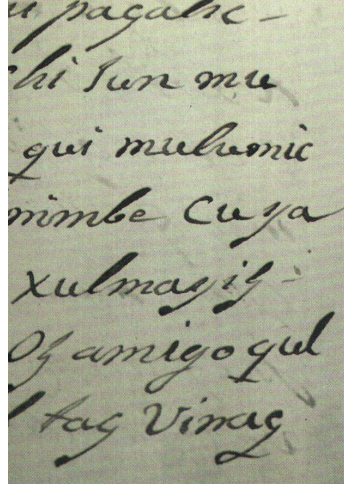 u pagalic-
chi Jun mu
qui mulumic
nimbe Cuya
xulmayij-
oz amigo qul
l tag Vinaq